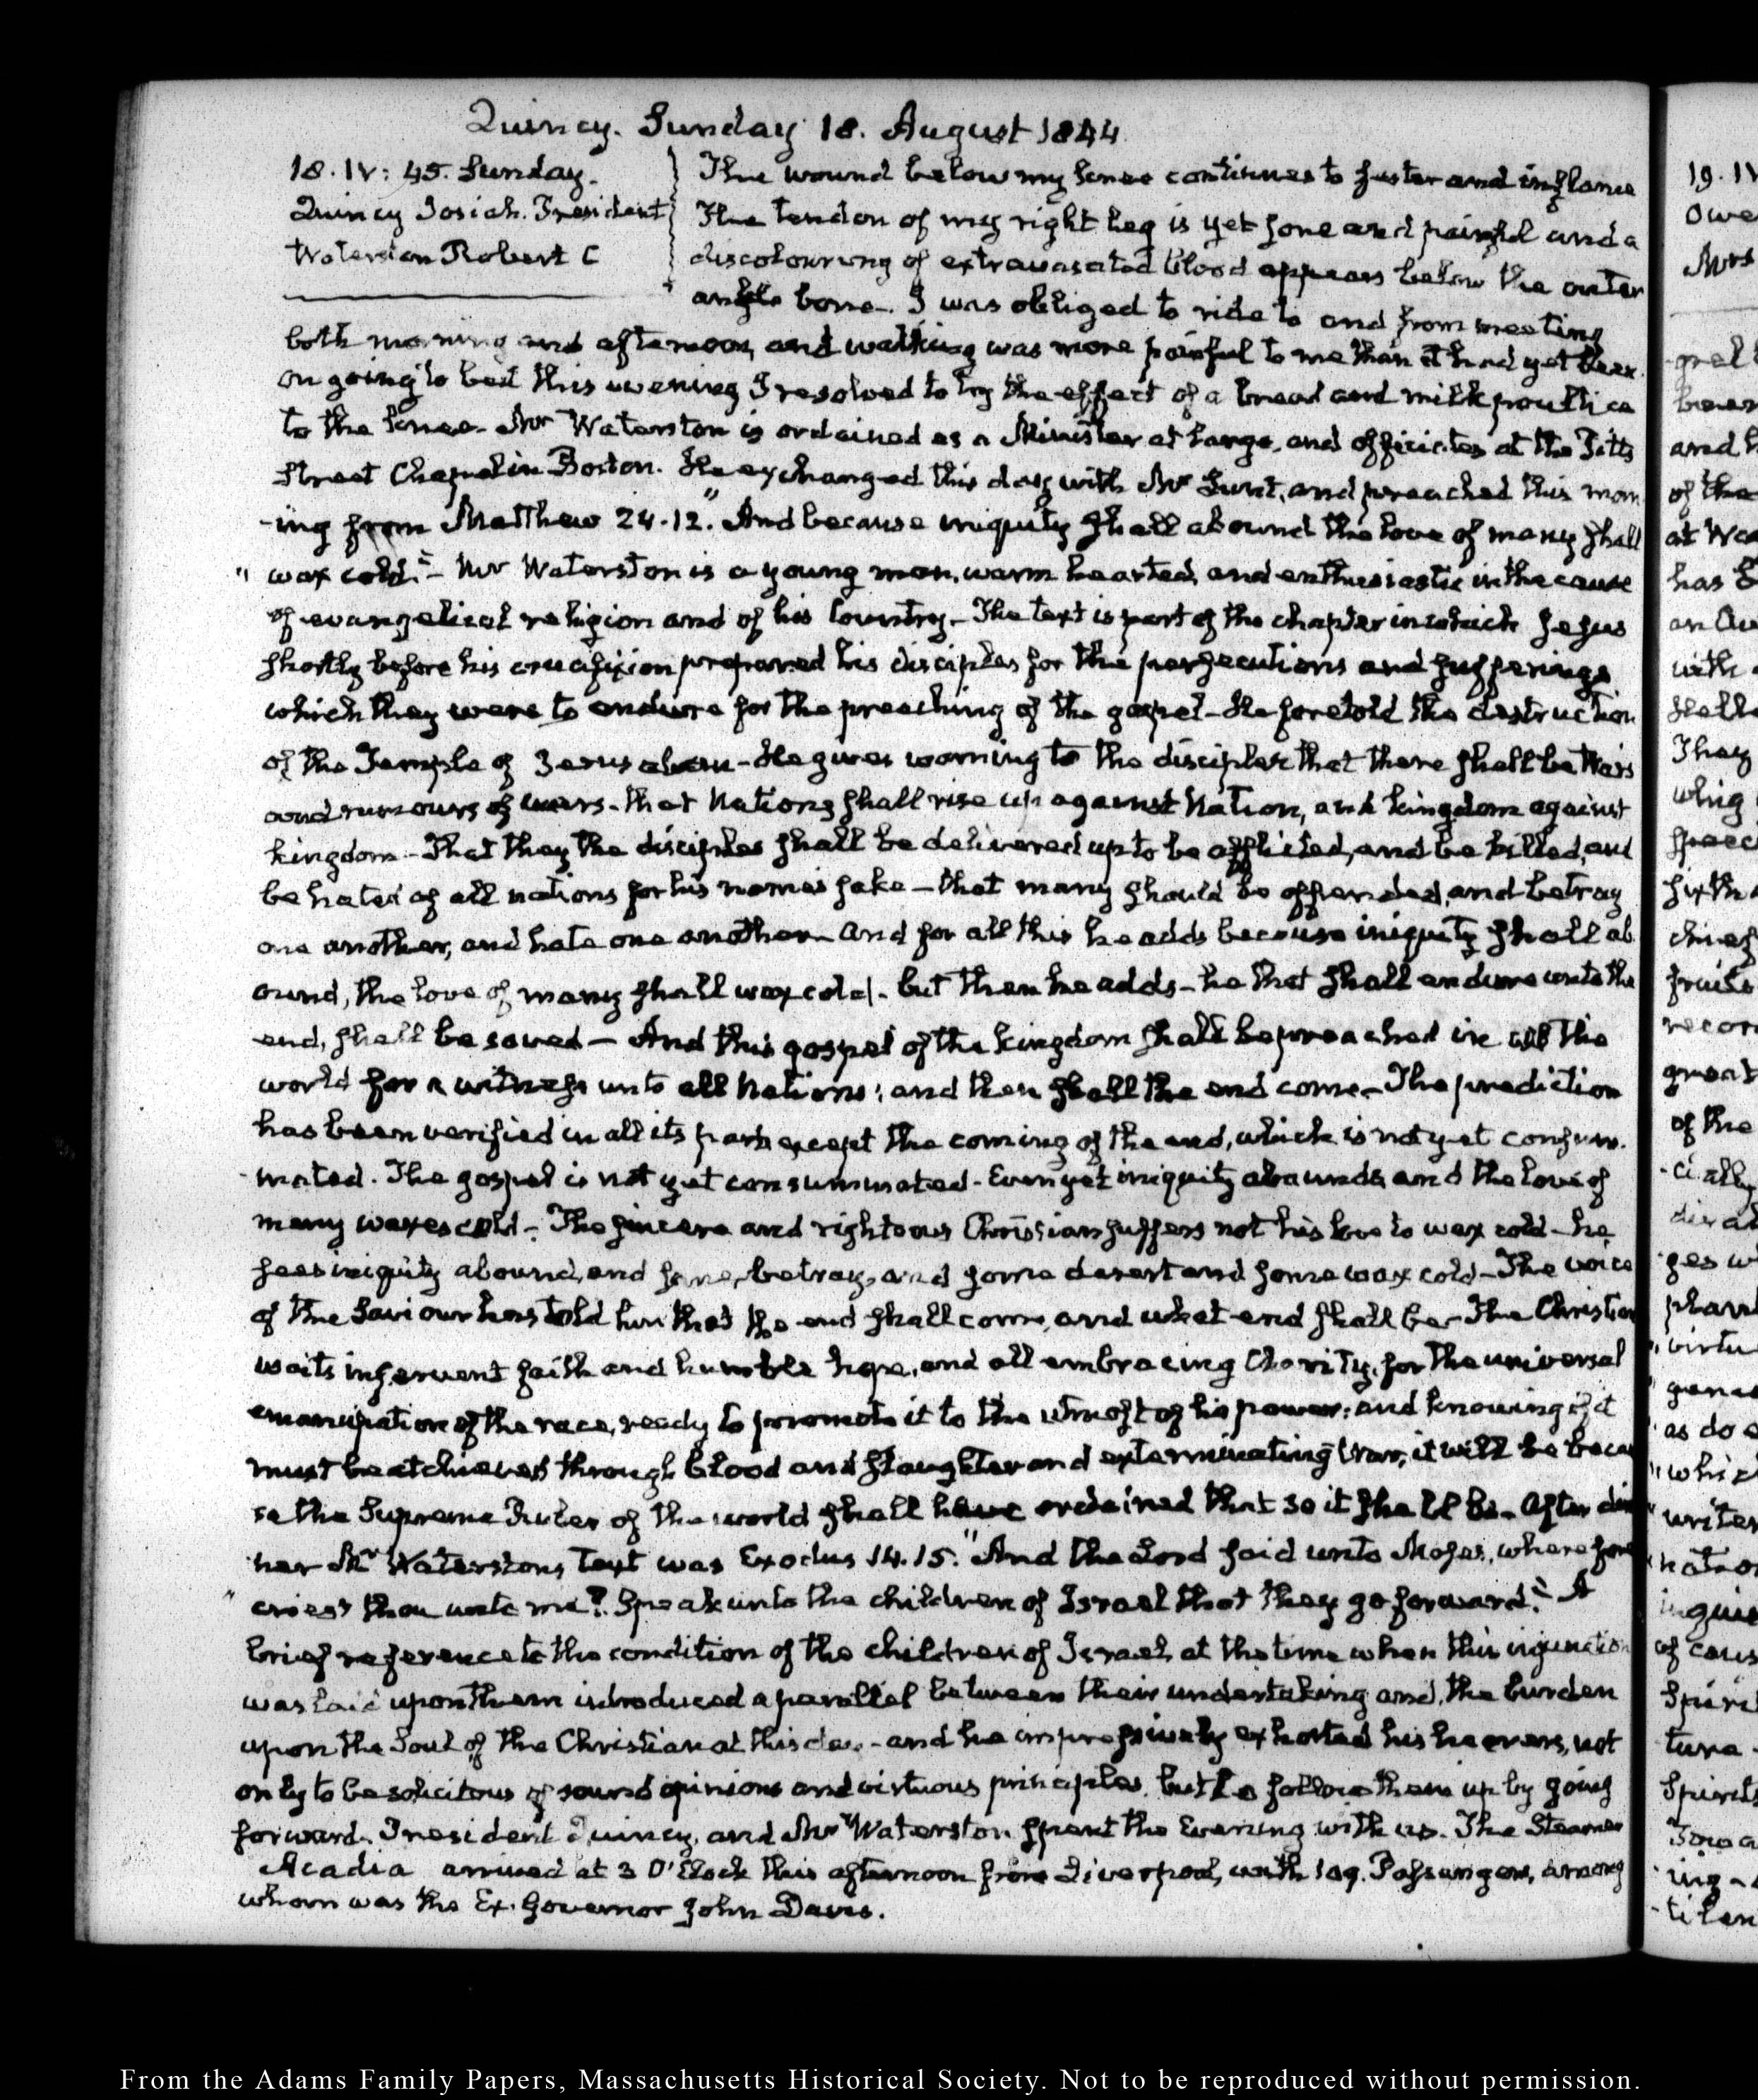 Quincy. Sunday 18. August 1844
18. IV: 45. Sunday.
Quincy Josiah. President
Waterston Robert C
The wound below my knee continues to fester and inflame
The tendon of my right leg is yet sore and painful and a
discolouring of extravasated blood appears below the outer
ankle bone. I was obliged to ride to and from meeting
both morning and afternoon, and walking was more painful to me than it had yet been.
on going to bed this evening I resolved to try the effect of a bread and milk poultice
to the knee. Mr Waterston is ordained as a Minister at large, and officiates at the Pitts
Street Chapel in Boston. He exchanged this day with Mr Lunt, and preached this morn
-ing from Matthew 24.12. "And because iniquity shall abound the love of many shall
" wax cold." - Mr Waterston is a young man, warm hearted, and enthusiastic in the cause
of evangelical religion and of his Country - The text is part of the chapter in which Jesus
shortly before his crucifixion prepared his disciples for the persecutions and sufferings
which they were to endure for the preaching of the gospel - He foretold the destruction
of the Temple of Jerusalem - He gives warning to the disciples that there shall be Wars
and rumours of wars - that Nations shall rise up against Nation, and kingdom against
kingdom - That they the disciples shall be delivered up to be afflicted, and be killed, and
be hated of all nations for his name's sake - that many should be offended, and betray
one another, and hate one another - And for all this he adds because iniquity shall ab
ound, the love of many shall wax cold - but then he adds - he that shall endure unto the
end, shall be saved - And this gospel of the kingdom shall be preached in all the
world for a witness unto all Nations; and then shall the end come - The prediction
has been verified in all its parts except the coming of the end, which is not yet consum-
-mated. The gospel is not yet consummated - Even yet iniquity abounds and the love of
many waxes cold - The sincere and righteous Christian suffers not his love to wax cold - he
sees iniquity abound, and some, betray, and some desert and some wax cold - The voice
of the Saviour has told him that the end shall come, and what end shall be - The Christian
waits in fervent faith and humble hope, and all embracing Charity, for the universal
emancipation of the race, ready to promote it to the utmost of his power; and knowing if it
must be atchieved through blood and slaughter and exterminating War, it will be becau
se the Supreme Ruler of the world shall have ordained that so it shall be. After din
ner Mr Waterstons text was Exodus 14.15. "And the Lord said unto Moses, wherefore
" criest thou unto me? Speak unto the children of Israel that they go forward." A
brief reference to the condition of the children of Israel at the time when this injunction
was laid upon them introduced a parallel between their undertaking and the burden
upon the Soul of the Christian at this day - and he impressively exhorted his hearers, not
only to be solicitous of sound opinions and virtuous principles, but to follow them up by going
forward. President Quincy, and Mr Waterston spent the Evening with us. The Steamer
Acadia arrived at 3 O'Clock this afternoon from Liverpool, with 109. Passengers, among
whom was the Ex. Governor John Davis.
19. IV
From the Adams Family Papers, Massachusetts Historical Society. Not to be reproduced without permission.